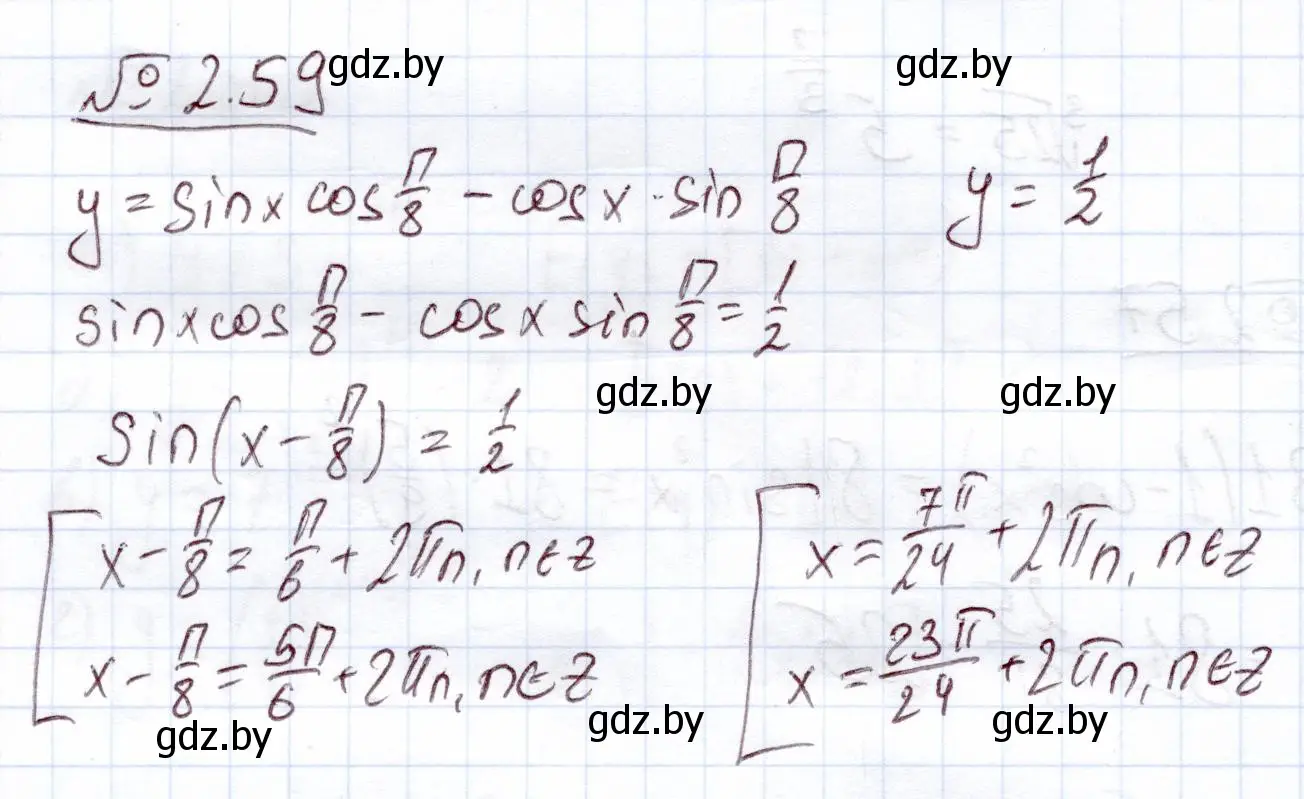 № 2.59 gdz.by gdz.by
y = sinx cos π/8 - cosx · sin π/8 y = 1/2
sinxcos π/8 - cosx sin π/8 = 1/2
gdz.by gdz.by
sin(x - π/8) = 1/2
[ x - π/8 = π/6 + 2πn, n∈z [ x = 7π/24 + 2πn, n∈z
x - π/8 = 5π/6 + 2πn, n∈z x = 23π/24 + 2πn, n∈z
gdz.by gdz.by gdz.by